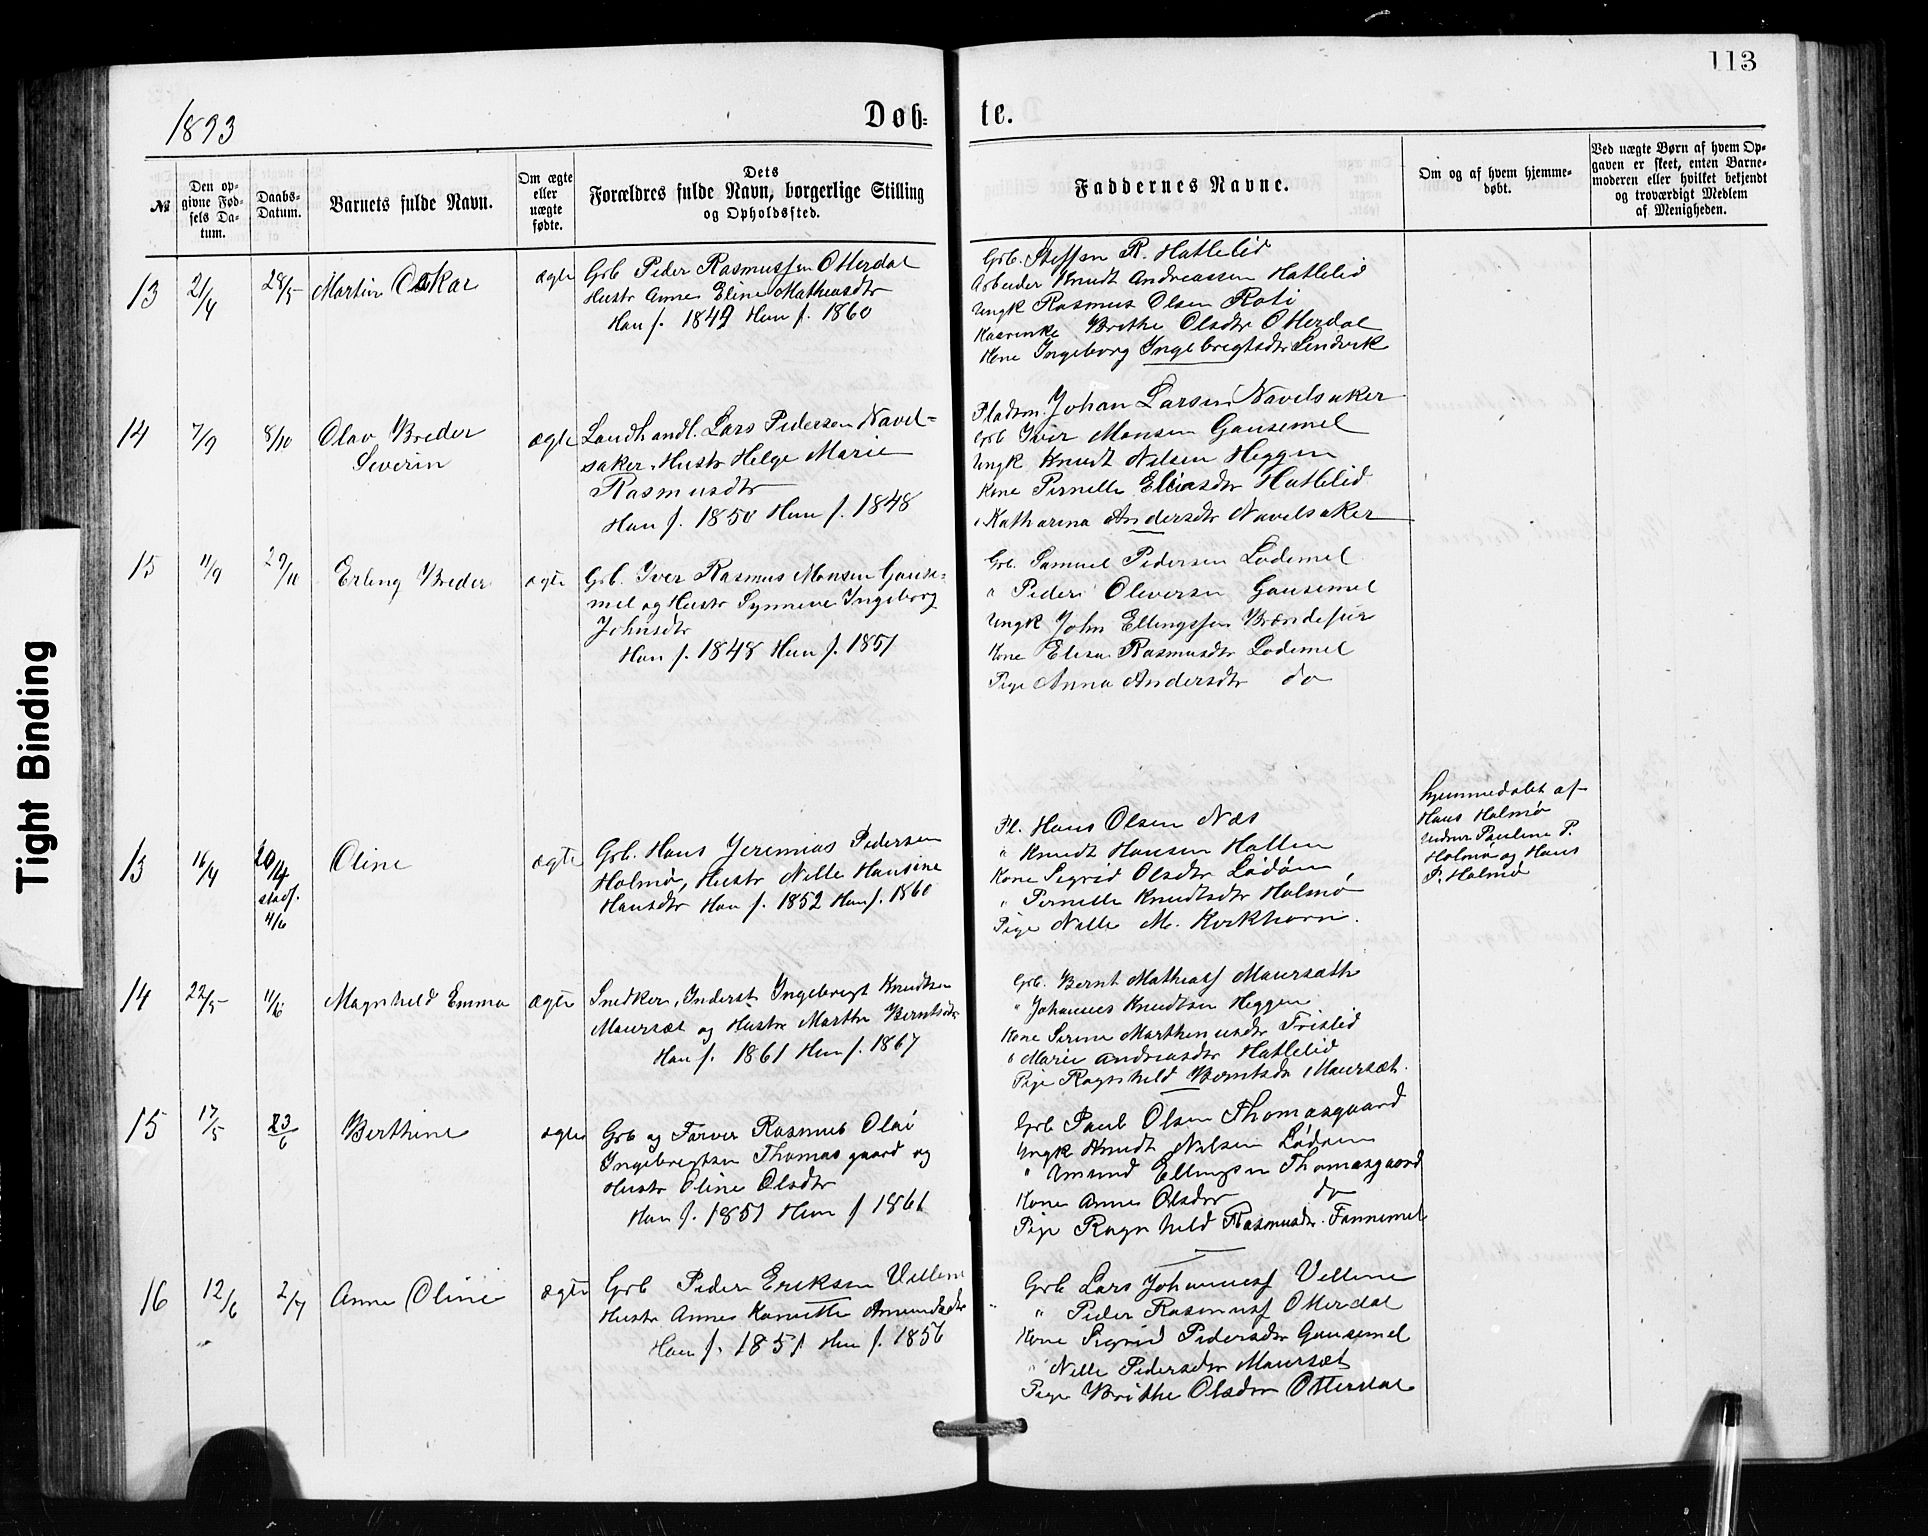 113
1893
Døb-
te.
№
Den op-
givne Fød-
sels Da-
tum.
Daabs-
Datum.
Barnets fulde Navn.
Om ægte
eller
uægte
fødte.
Dets
Forældres fulde Navn, borgerlige Stilling
og Opholdssted.
Faddernes Navne.
Om og af hvem hjemme-
døbt.
Ved uægte Børn af hvem Op-
gaven er skeet, enten Barne-
moderen eller hvilket bekjendt
og troværdigt Medlem
af Menigheden.
13
21/4
28/5
Martin Oskar
ægte
Grb Peder Rasmussen Otterdal
Hustr Anne Eline Matheusdtr
Han f. 1842 Hun f. 1860
Grb. Steffen R. Hatlelid
Arbeider Knudt Andreassen Hatlelid
Ungk Rasmus Olsen Roti
Brithe Olsdtr Otterdal
Kone Ingeborg Ingebregtsdtr Lindvik
14
7/9
8/10
Olav Breder
Severin
ægte
Landhandl. Lars Pedersen Navel-
saker, Hustr Helge Marie
Rasmusdtr
Han f. 1850 Hun f. 1848
Pladsm. Johan Larsen Navelsaker
Grb Iver Monsen Gausemel
Ungk Knudt Nilsen Heggen
Kone Pernille Eliasdtr Hatlelid
" Katharina Andersdtr Navelsaker
15
11/9
29/11
Erling Breder
ægte
Grb. Iver Rasmus Monsen Gause-
mel og Hustr Synneve Ingeborg
Johnsdtr
Han f. 1848 Hun f. 1851
Grb. Samuel Pedersen Lodemel
" Peder Oliversen Gausemel
Ungk John Ellingssen
Kone Elisa Rasmusdtr Lodemel
Pige Anna Andersdtr do
13
16/4
20/4
stadf.
4/6
Oline
ægte
Grb. Hans Jeremias Pedersen
Holmø, Hustr Nille Hansine
Hansdtr Han f. 1852 Hun f. 1860
Pl. Hans Olsen Næs
" Knudt Hansen Hallen
Kone Sigrid Olsdtr Lødøen
" Pernille Knudtsdtr Holmø
Pige Nille M. Kirkhorn.
hjemmedøbt af
Hans Holmø
Pauline P.
Holmø og Hans
P. Holmø
14
22/5
11/6
Magnhild Emma
ægte
Snedker, Inderst Ingebregt Knudtsen
Maursæt og Hustr Marthe Berntsdtr
Han f. 1861 Hun f. 1867
Grb. Bernt Mathiass Maursæth
" Johannes Knudtsen Heggen
Kone Serine Marthinusdtr Frislid
" Marie Andreasdtr Hatlelid
Pige Ragnhild Berntsdtr Maursæt.
15
17/5
23/6
Berthine
ægte
Grb og Farver Rasmus Olai
Ingebregtsen Thomasgaard og
Hustr Oline Olsdtr
Han f. 1851 Hun f 1861
Grb Paul Olsen Thomasgaard
Ungk Knudt Nilsen Lødøen
" Amund Ellingsen Thomasgaard
Kone Anne Olsdtr do
Pige Ragnhild Rasmusdtr. Fannemel
16
12/6
2/7
Anne Oline
ægte
Grb Peder Eriksen Villene
Hustr Anne Karnitte Amundsdtr
Han f. 1851 Hun f. 1856
Grb Lars Johanness Villene
" Peder Rasmuss Otterdal
Kone Sigrid Pedersdtr Gausemel
" Nille Pedersdtr Maursæt
Pige Brithe Olsdtr Otterdal
Tight Binding